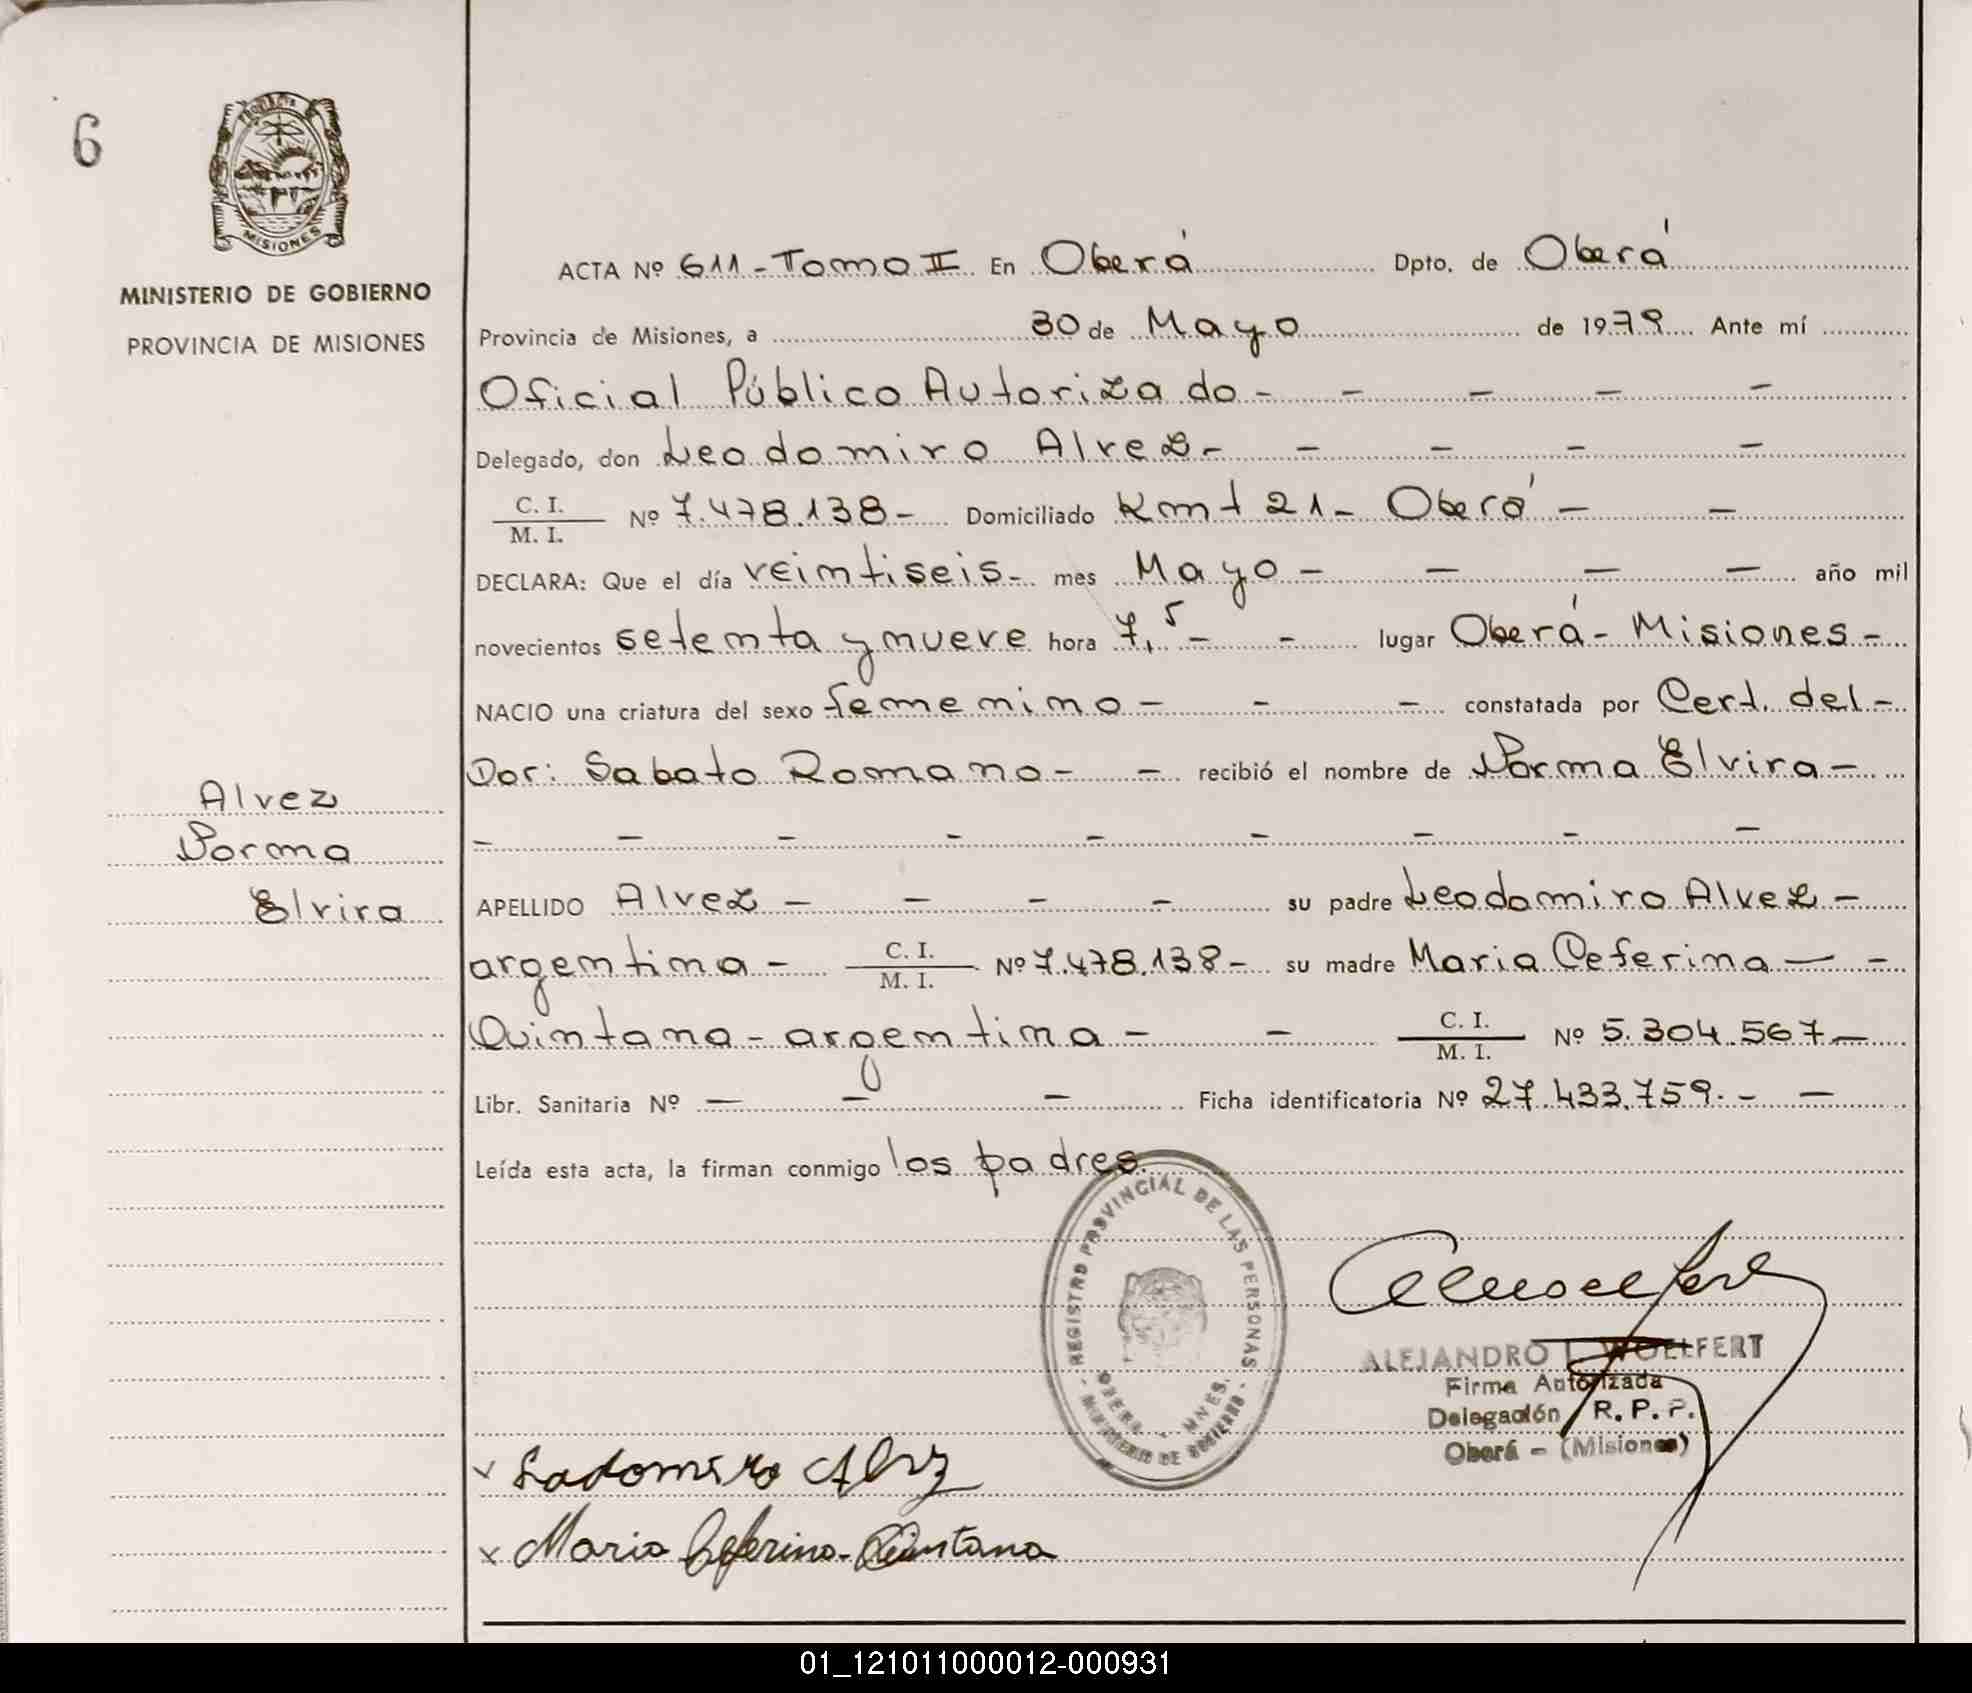 6
PROVINCIA
MISIONES
MINISTERIO DE GOBIERNO
PROVINCIA DE MISIONES
ACTA Nº 611 - Tomo II En Oberá Dpto. de Oberá
Provincia de Misiones, a 30 de Mayo de 1979 Ante mí
Oficial Público Autorizado - - - - -
Delegado, don Leodomiro Alvez - - - - -
C. I.
M. I. Nº 7.478.138 - Domiciliado Kmt 21 - Oberá - -
DECLARA: Que el día veintiseis - mes Mayo - - - - año mil
novecientos setenta y nueve hora 7,5 - - lugar Oberá - Misiones -
NACIO una criatura del sexo femenino - - - constatada por Cert. del -
Dor: Sabato Romano - - recibió el nombre de Norma Elvira -
- - - - - - - - -
Alvez
Norma
Elvira
APELLIDO Alvez - - - - su padre Leodomiro Alvez -
argentina - C. I.
M. I. Nº 7.478.138 - su madre Maria Ceferina - -
Quintana - argentina - - C. I.
M. I. Nº 5.304.567 -
Libr. Sanitaria Nº - - - Ficha identificatoria Nº 27.433.759. - -
Leída esta acta, la firman conmigo los padres.
REGISTRO PROVINCIAL DE LAS PERSONAS
OBERA - MNES.
MINISTERIO DE GOBIERNO
ALEJANDRO L. WOELFERT
Firma Autorizada
Delegación R. P. P.
Oberá - (Misiones)
x Ladomiro Alvez
x Maria Ceferina - Quintana
01_121011000012-000931